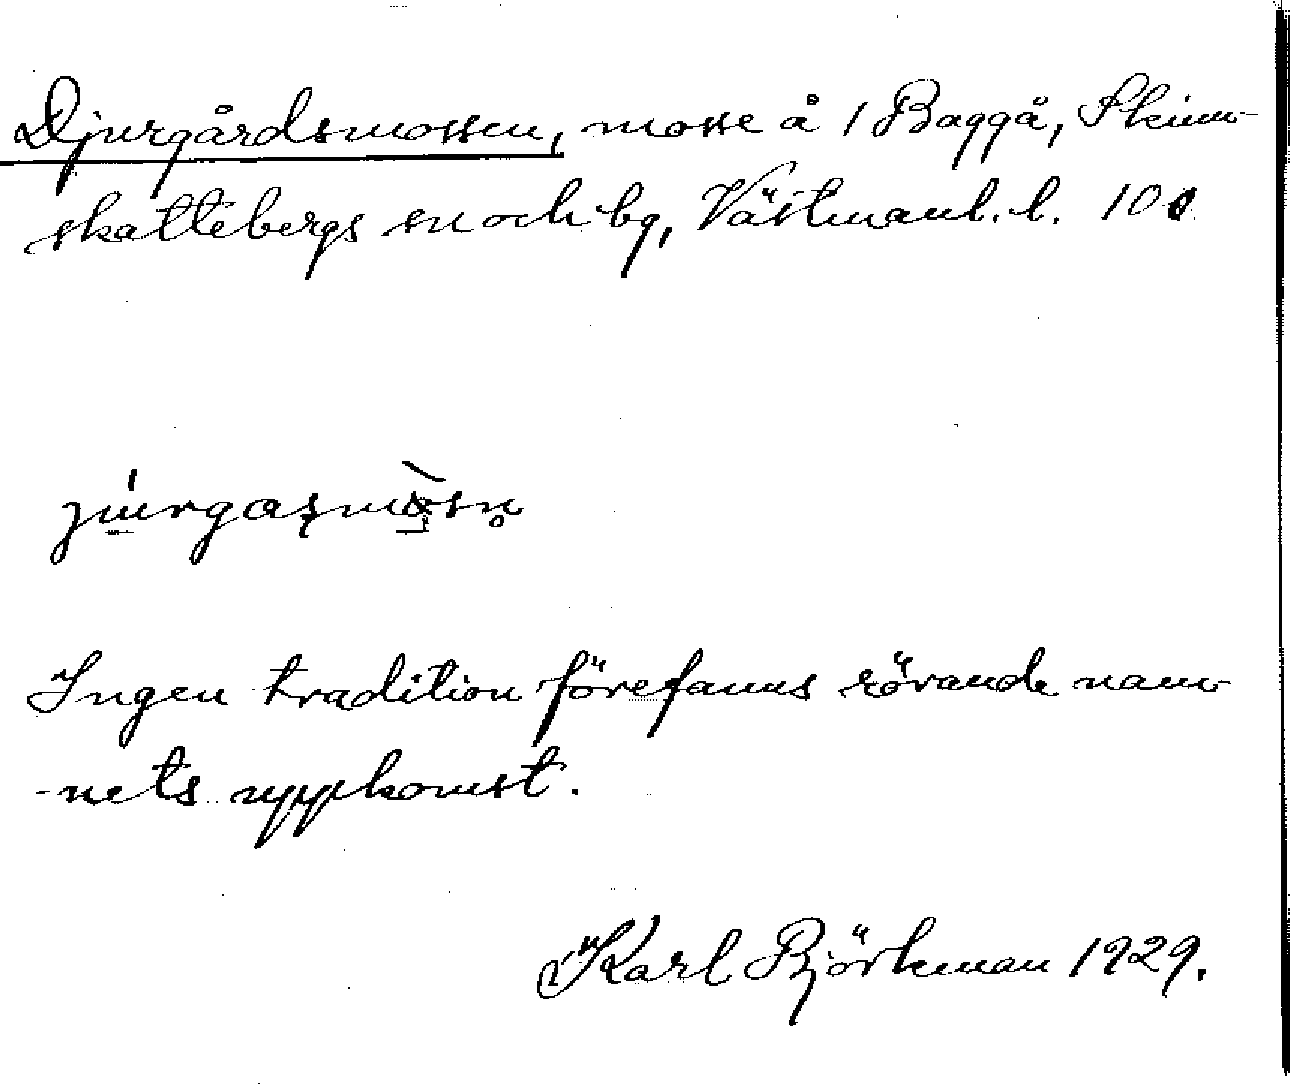 Djurgårdsmossen, mosse å 1 Baggå, Skinn-
skattebergs sn och bg, Västmanl. l. 10
Ingen tradition förefanns rörande nam-
-nets uppkomst.
Karl Björkman 1929.